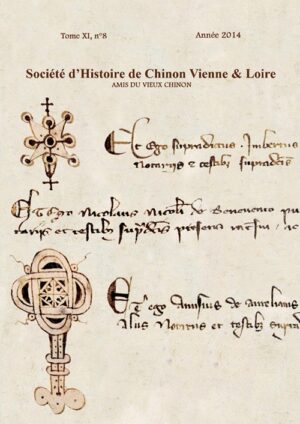 Tome XI, n°8
Année 2014
Société d'Histoire de Chinon Vienne & Loire
AMIS DU VIEUX CHINON
Et Ego supradictus Imbertus
notarius et testibz supradictis
Et Ego Nicolaus Nicoli de Benevento pu
et testibz presens
Et ego Amisius de aurelianis
notarius et testibus